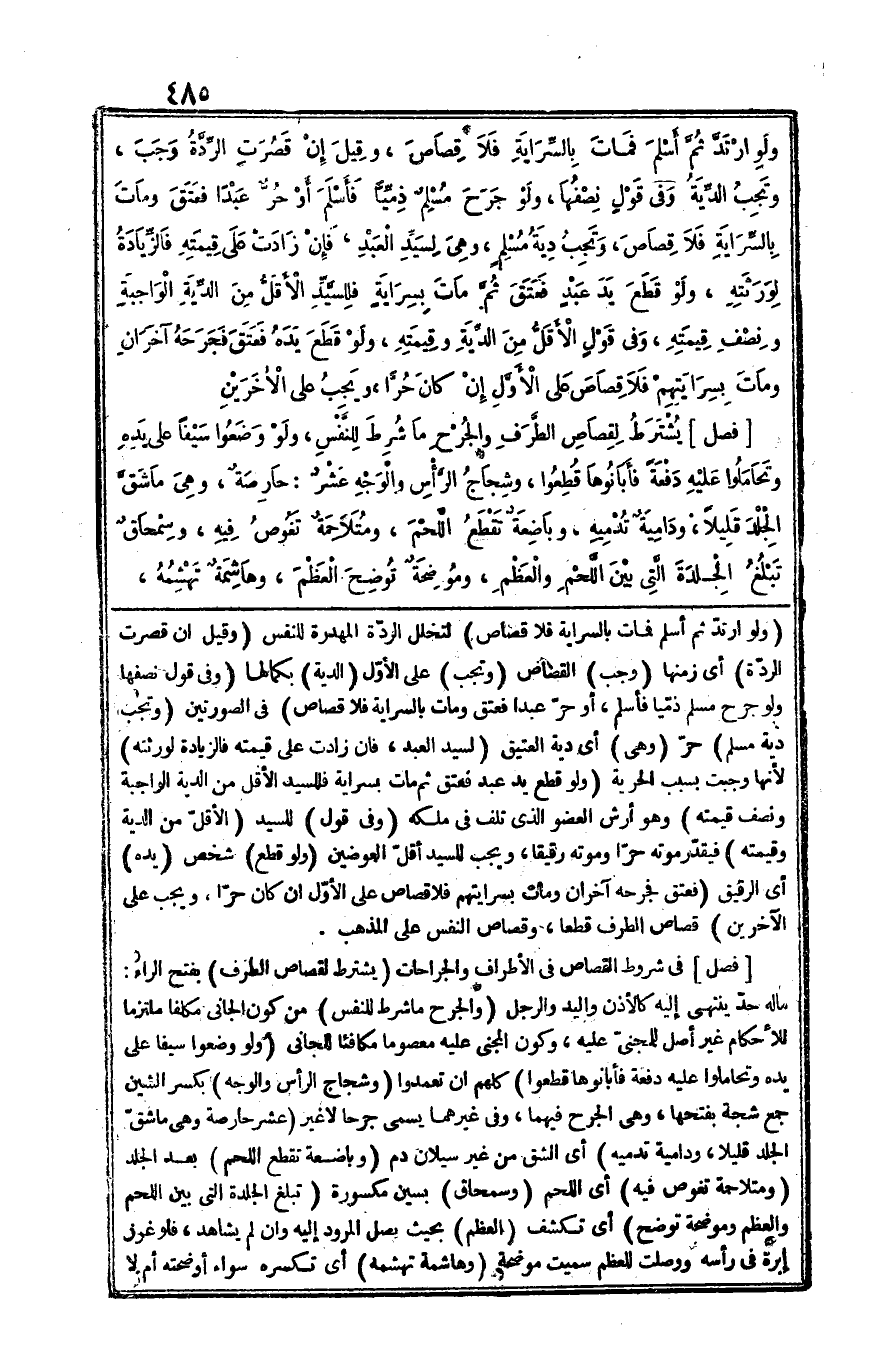 ٤٨٥
ولَوِ ارْتَدَّ ثُمَّ أَسْلَمَ فَمَاتَ بِالسِّرَايَةِ فَلَا قِصَاصَ ، وقِيلَ إِنْ قَصُرَتِ الرِّدَّةُ وَجَبَ ،
وتَجِبُ الدِّيَةُ وَفِى قَوْلٍ نِصْفُهَا ، ولَوْ جَرَحَ مُسْلِمٌ ذِمِّيًّا فَأَسْلَمَ أَوْ حُرٌّ عَبْدًا فَعَتَقَ ومَاتَ
بِالسِّرَايَةِ فَلَا قِصَاصَ ، وتَجِبُ دِيَةُ مُسْلِمٍ ، وهِىَ لِسَيِّدِ الْعَبْدِ ، فَإِنْ زَادَتْ عَلَى قِيمَتِهِ فَالزِّيَادَةُ
لِوَرَثَتِهِ ، ولَوْ قَطَعَ يَدَ عَبْدٍ فَعَتَقَ ثُمَّ مَاتَ بِسِرَايَةٍ فَلِلسَّيِّدِ الْأَقَلُّ مِنَ الدِّيَةِ الْوَاجِبَةِ
ونِصْفِ قِيمَتِهِ ، وَفِى قَوْلٍ الْأَقَلُّ مِنَ الدِّيَةِ وقِيمَتِهِ ، ولَوْ قَطَعَ يَدَهُ فَعَتَقَ فَجَرَحَهُ آخَرَانِ
ومَاتَ بِسِرَايَتِهِمْ فَلَا قِصَاصَ عَلَى الْأَوَّلِ إِنْ كَانَ حُرًّا ، ويَجِبُ عَلَى الْآخَرَيْنِ
[ فصل ] يُشْتَرَطُ لِقِصَاصِ الطَّرَفِ والْجُرْحِ مَا شُرِطَ لِلنَّفْسِ ، ولَوْ وَضَعُوا سَيْفًا عَلَى يَدِهِ
وتَحَامَلُوا عَلَيْهِ دَفْعَةً فَأَبَانُوهَا قُطِعُوا ، وشِجَاجُ الرَّأْسِ والْوَجْهِ عَشْرٌ : حَارِصَةٌ ، وهِىَ مَا شَقَّ
الْجِلْدَ قَلِيلًا ، ودَامِيَةٌ تُدْمِيهِ ، وبَاضِعَةٌ تَقْطَعُ اللَّحْمَ ، ومُتَلَاحِمَةٌ تَغُوصُ فِيهِ ، وسِمْحَاقٌ
تَبْلُغُ الْجِلْدَةَ الَّتِى بَيْنَ اللَّحْمِ والْعَظْمِ ، ومُوضِحَةٌ تُوضِحُ الْعَظْمَ ، وهَاشِمَةٌ تَهْشِمُهُ ،
( ولو ارتدّ ثم أسلم فمات بالسراية فلا قصاص ) لتخلل الردّة المهدرة للنفس ( وقيل ان قصرت
الردّة ) أى زمنها ( وجب ) القصاص ( وتجب ) على الأوّل ( الدية ) بكمالها ( وفى قول نصفها
ولو جرح مسلم ذمّيا فأسلم ، أو حرّ عبدا فعتق ومات بالسراية فلا قصاص ) فى الصورتين ( وتجب
دية مسلم ) حرّ ( وهى ) أى دية العتيق ( لسيد العبد ، فان زادت على قيمته فالزيادة لورثته )
لأنها وجبت بسبب الحرية ( ولو قطع يد عبد فعتق ثم مات بسراية فللسيد الأقل من الدية الواجبة
ونصف قيمته ) وهو أرش العضو الذى تلف فى ملكه ( وفى قول ) للسيد ( الأقلّ من الدية
وقيمته ) فيقدّر موته حرّا وموته رقيقا ، ويجب للسيد أقلّ العوضين ( ولو قطع ) شخص ( يده )
أى الرقيق ( فعتق فجرحه آخران ومات بسرايتهم فلا قصاص على الأوّل ان كان حرّا ، ويجب على
الآخرين ) قصاص الطرف قطعا ، وقصاص النفس على المذهب .
[ فصل ] فى شروط القصاص فى الأطراف والجراحات ( يشترط لقصاص الطرف ) بفتح الراء :
ماله حدّ ينتهى إليه كالأذن واليد والرجل ( والجرح ماشرط للنفس ) من كون الجانى مكلفا ملتزما
للأحكام غير أصل للمجنىّ عليه ، وكون المجنى عليه معصوما مكافئا للجانى ( ولو وضعوا سيفا على
يده وتحاملوا عليه دفعة فأبانوها قطعوا ) كلهم ان تعمدوا ( وشجاج الرأس والوجه ) بكسر الشين
جمع شجة بفتحها ، وهى الجرح فيهما ، وفى غيرهما يسمى جرحا لاغير ( عشر حارصة وهى ماشقّ
الجلد قليلا ، ودامية تدميه ) أى الشق من غير سيلان دم ( وباضعة تقطع اللحم ) بعد الجلد
( ومتلاحمة تغوص فيه ) أى اللحم ( وسمحاق ) بسين مكسورة ( تبلغ الجلدة التى بين اللحم
والعظم وموضحة توضح ) أى تكشف ( العظم ) بحيث يصل المرود إليه وان لم يشاهد ، فلو غرز
إبرة فى رأسه ووصلت للعظم سميت موضحة ( وهاشمة تهشمه ) أى تكسره سواء أوضحته أم لا